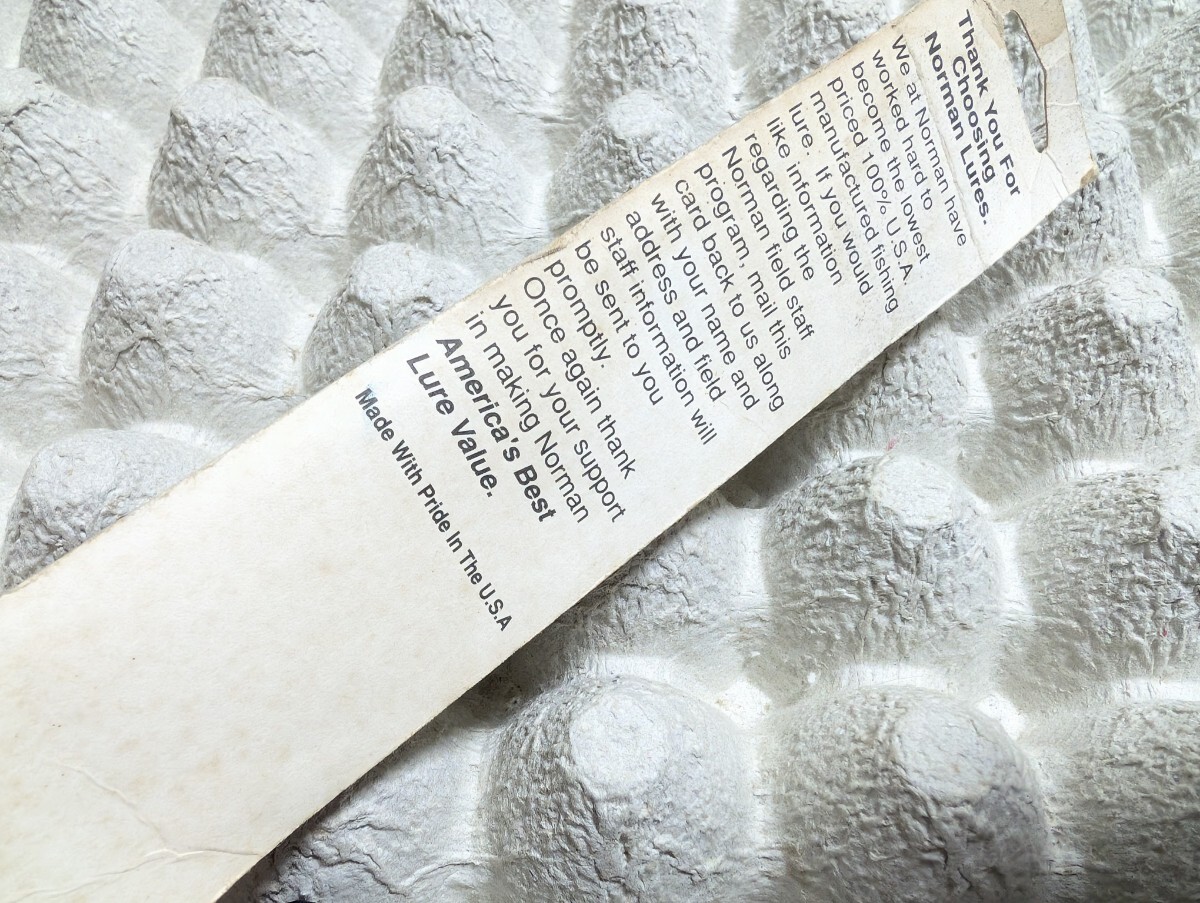 Thank You For
Choosing
Norman Lures.
We at Norman have
worked hard to
become the lowest
priced 100% U.S.A.
manufactured fishing
lure. If you would
like information
regarding the
Norman field staff
program, mail this
card back to us along
with your name and
address and field
staff information will
be sent to you
promptly.
Once again thank
you for your support
in making Norman
America's Best
Lure Value.
Made With Pride In The U.S.A